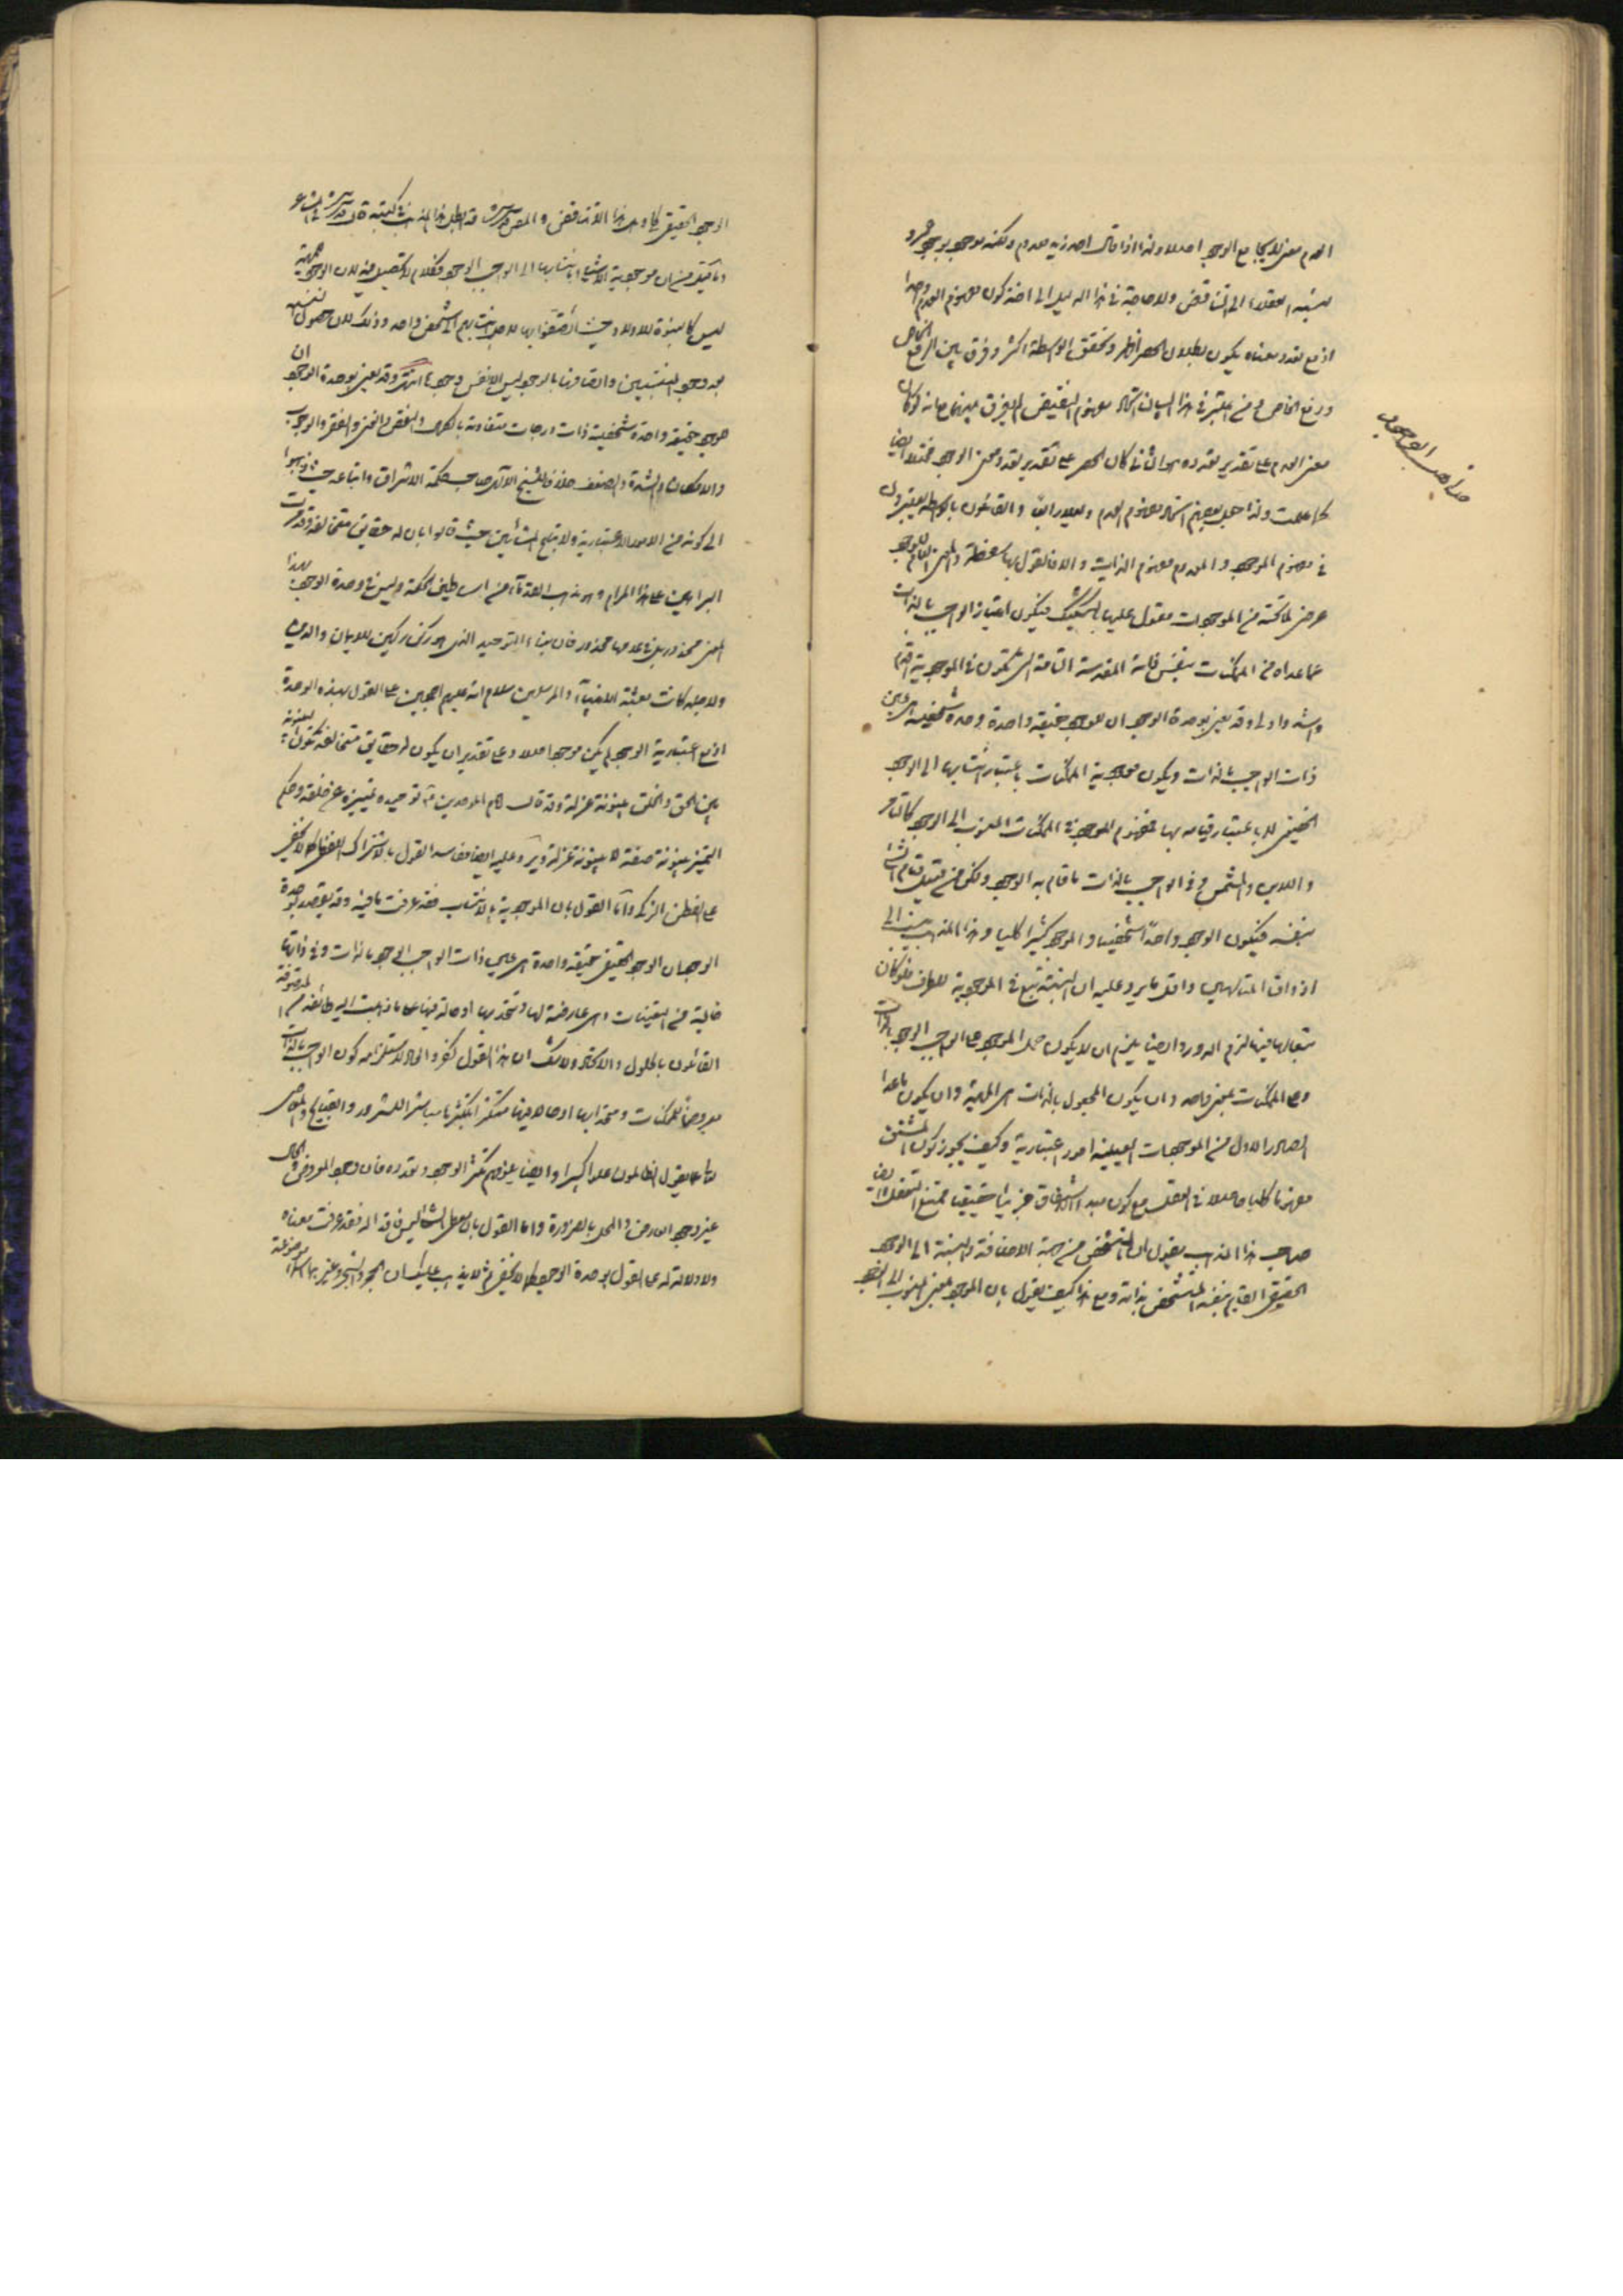 العدم معنى لا يجامع الوجود اصلا ولذا اذا قال احد زيد معدوم ولكنه موجود بوجود
ينسبه العقلاء الى التناقض ولا حاجة في هذا الدليل الى اخذ كون مفهوم العدم واحدا
اذ مع تعدد معناه يكون بطلان الحصر اظهر وتحقق الواسطة اكثر وفرق بين الرفع الخاص
ورفع الخاص في هذا البيان اتحاد مفهوم النقيض
معنى العدم على تقدير تعدده كان الحصر على تقدير تعدد معنى الوجود ايضا
كما علمت ولذا جعل بعضهم اتحاد مفهوم العدم دليلا والقائلون بالواسطة
في مفهوم الموجود والمعدوم مفهوم الذات والا فالقول بها سفسطة
عرض لما تحته من الموجودات مقول عليها بالتشكيك فيكون امتياز الواجب بالذات
عما عداه من الممكنات بنفس ذاته المقدسة التامة التي تكون في الموجودية اقدم
واشد واولى وقد يعنى بوحدة الوجود ان للوجود حقيقة واحدة وحدة شخصية هي عين
ذات الواجب بالذات ويكون موجودية الممكنات باعتبار انتسابها الى الوجود
الحقيقي لا باعتبار قيامه بها فمفهوم الموجود في الممكنات المنسوب الى الوجود كالتامر
واللابن والمشمس وفي الواجب بالذات ما قام به الوجود ولكن من قبيل قيام الشئ
بنفسه فيكون الوجود واحدا شخصيا والموجود كثيرا كليا وهذا المذهب ينسب الى
اذواق المتالهين واقل ما يرد عليه ان النسبة تتبع في الموجودية للطرف فلو كان
بالعكس لزم الدور وايضا يلزم ان لا يكون حمل الموجود على الواجب الوجود بالذات
وعلى الممكنات بمعنى واحد وان يكون المجعول بالذات هي المهية وان يكون ما عدا
الصادر الاول من الموجودات العينية امور اعتبارية وكيف يجوز كون المشتق
مفهوما كليا حاصلا في العقل مع كون مبدء الاشتقاق جزئيا حقيقيا ممتنع التعقل وايضا
صاحب هذا المذهب يقول ان التشخص من جهة الاضافة والنسبة الى الوجود
الحقيقي القايم بنفسه المتشخص بذاته ومع هذا كيف يقول بان الموجود بمعنى المنسوب الى الوجود
مذاهب الوجود
الوجود الحقيقي كلي وهل هذا الا تناقض والمصنف قدس سره قد ابطل هذا المذهب في كتبه قال قدس سره في المشاعر
وما قيل من ان موجودية الاشياء بانتسابها الى الواجب الوجود فكلام لا تحصيل فيه لان الوجود للمهية
ليس كالبنوة للاولاد حيث اتصفوا بها لاجل انتسابهم الى شخص واحد وذلك لان حصول النسبة
بعد وجود المنتسبين واتصافها بالوجود ليس الا نفس وجودها انتهى وقد يعنى بوحدة الوجود ان
للوجود حقيقة واحدة شخصية ذات درجات متفاوتة بالكمال والنقص والغنى والفقر والوجوب
والامكان والشدة والضعف خلافا للشيخ الالهي صاحب حكمة الاشراق واتباعه حيث ذهبوا
الى كونه من الامور الاعتبارية ولاتباع المشائين حيث قالوا بان له حقايق متخالفة وقد قررت
البراهين على هذا المرام وهو مذهب القدماء من اساطين الحكمة وليس في وحدة الوجود بهذا
المعنى محذور بل في عدمها محذور فان بناء التوحيد الذي هو ركن ركين للايمان والدين
ولاجله كانت بعثة الانبياء والمرسلين سلام الله عليهم اجمعين على القول بهذه الوحدة
اذ مع اعتبارية الوجود لم يكن موجود اصلا وعلى تقدير ان يكون له حقايق متخالفة تكون البينونة
بين الحق والخلق بينونة عزلة وقد قال امام الموحدين توحيده تمييزه عن خلقه وحكم
التمييز بينونة صفة لا بينونة عزلة ويرد عليه ايضا مفاسد القول بالاشتراك اللفظي كما لا يخفى
على الفطن الزكي واما القول بان الموجودية بالانتساب فقد عرفت ما فيه وقد يقصد بوحدة
الوجود ان الوجود الحقيقي حقيقة واحدة هي عين ذات الواجب الوجود بالذات وفي ذاتها
خالية من التعينات وهي عارضة لها او متحد بها او حالة فيها على ما ذهبت اليه طائفة من المتصوفة
القائلون بالحلول والاتحاد ولا شك ان هذا القول كفر والحاد لاستلزامه كون الواجب بالذات
معروضا للممكنات ومتحدا بها او حالا فيها متكثرا بتكثرها مباشرا للشرور والقبايح والمعاصي
تعالى عما يقول الظالمون علوا كبيرا وايضا يلزم تكثر الوجود وتعدده فان وجود المعروض والحال
غير وجود العارض والمحل بالضرورة واما القول بان معطى الشئ ليس فاقدا له فقد عرفت معناه
ولا دلالة له على القول بوحدة الوجود كما لا يخفى ثم لا يذهب عليك ان الحجر والشجر وغيرهما